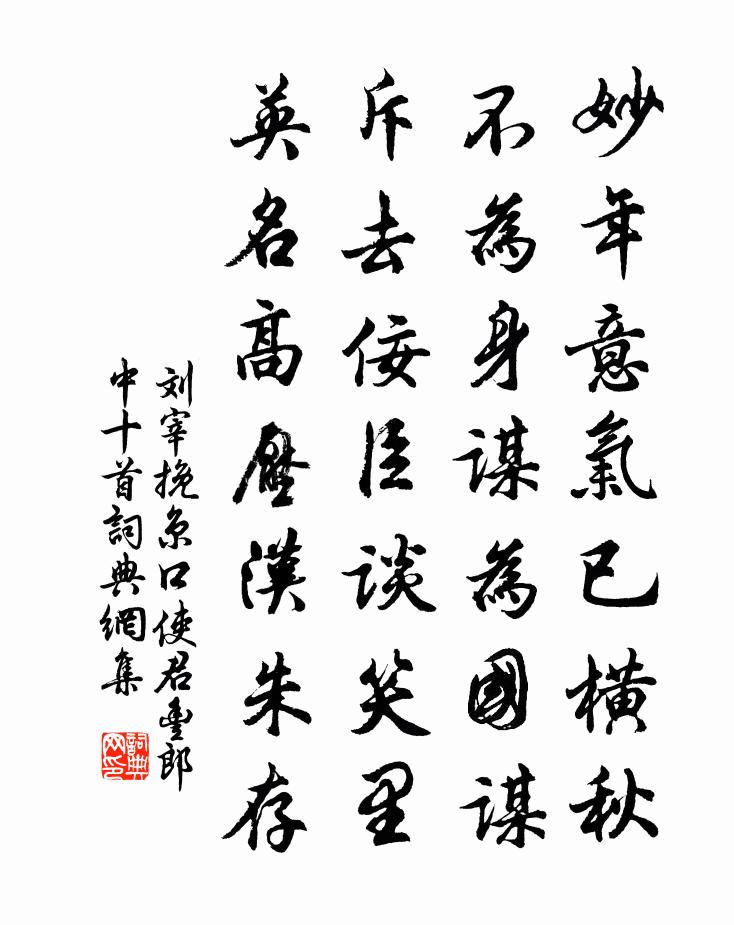 妙年意氣已橫秋
不為身謀為國謀
斥去佞臣談笑里
英名高壓漢朱存
刘宰挽京口使君豐郎
中十首詞典網集
詞典
网印